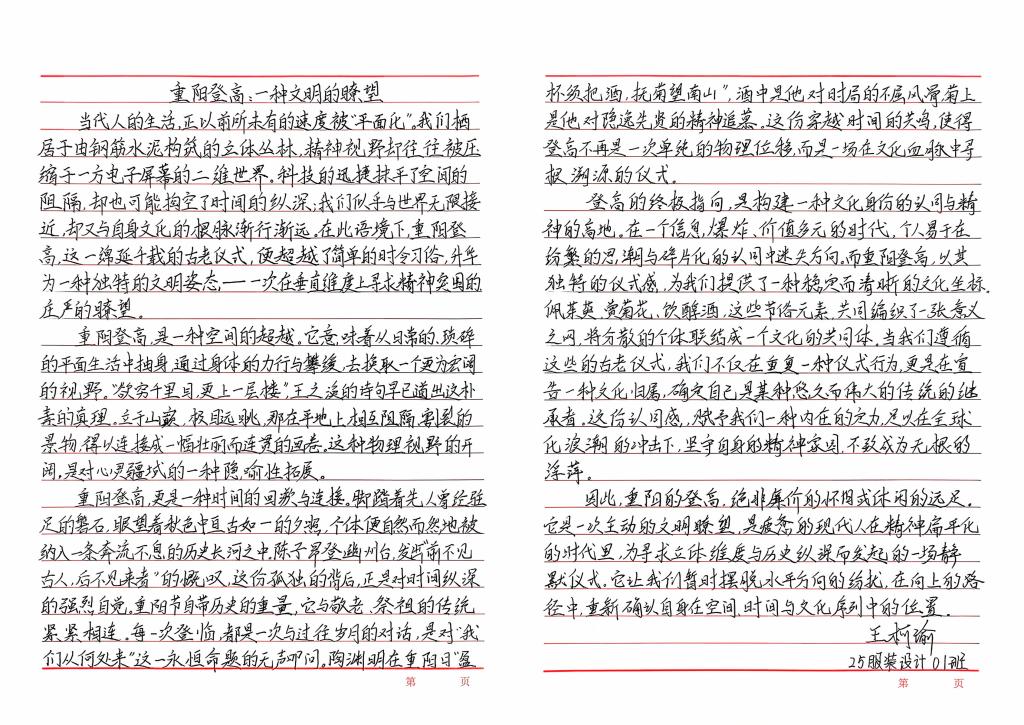 重阳登高：一种文明的瞭望
当代人的生活，正以前所未有的速度被“平面化”。我们栖
居于由钢筋水泥构筑的立体丛林，精神视野却往往被压
缩于一方电子屏幕的二维世界。科技的迅捷抹平了空间的
阻隔，却也可能掏空了时间的纵深；我们似乎与世界无限接
近，却又与自身文化的根脉渐行渐远。在此语境下，重阳登
高，这一绵延千载的古老仪式，便超越了简单的时令习俗，升华
为一种独特的文明姿态，——一次在垂直维度上寻求精神突围的
庄严的瞭望。
重阳登高，是一种空间的超越。它意味着从日常的、琐碎
的平面生活中抽身，通过身体的力行与攀缓，去换取一个更为宏阔
的视野。“欲穷千里目，更上一层楼”，王之涣的诗句早已道出这朴
素的真理。立于山巅，极目远眺，那在平地上相互阻隔、割裂的
景物，得以连接成一幅壮丽而连贯的画卷。这种物理视野的开
阔，是对心灵疆域的一种隐喻性拓展。
重阳登高，更是一种时间的回教与连接。脚踏着先人曾经驻
足的磐石，眼望着秋色中亘古如一的夕照，个体便自然而然地被
纳入一条奔流不息的历史长河之中。陈子昂登幽州台，发出“前不见
古人，后不见来者”的慨叹，这份孤独的背后，正是对时间纵深
的强烈自觉。重阳节自带历史的重量，它与敬老、祭祖的传统
紧紧相连。每一次登临，都是一次与过往岁月的对话，是对“我
们从何处来”这一永恒命题的无声叩问。陶渊明在重阳日“盈
杯须把酒，抚菊望南山”，酒中是他对时局的不屈风骨菊上
是他对隐逸先贤的精神追慕。这份穿越时间的共鸣，使得
登高不再是一次单纯的物理位移，而是一场在文化血脉中寻
根溯源的仪式。
登高的终极指向，是构建一种文化身份的认同与精
神的高地。在一个信息爆炸、价值多元的时代，个人易于在
纷繁的思潮与碎片化的认同中迷失方向。而重阳登高，以其
独特的仪式感，为我们提供了一种稳定而清晰的文化坐标。
佩茱萸、赏菊花、饮醇酒，这些节俗元素，共同编织了一张意义
之网，将分散的个体联结成一个文化的共同体。当我们遵循
这些的古老仪式，我们不仅在重复一种仪式行为，更是在宣
告一种文化归属，确定自己是某种悠久而伟大的传统的继
承者。这份认同感，赋予我们一种内在的定力，足以在全球
化浪潮的冲击下，坚守自身的精神家园，不致成为无根的
浮萍。
因此，重阳的登高，绝非廉价的怀旧或休闲的远足。
它是一次主动的文明瞭望，是疲惫的现代人在精神扁平化
的时代里，为寻求立体维度与历史纵深而发起的一场静
默仪式。它让我们暂时摆脱水平方向的纷扰，在向上的路
径中，重新确认自身在空间、时间与文化序列中的位置。
王柯瑜
25服装设计01班
第 页
第 页